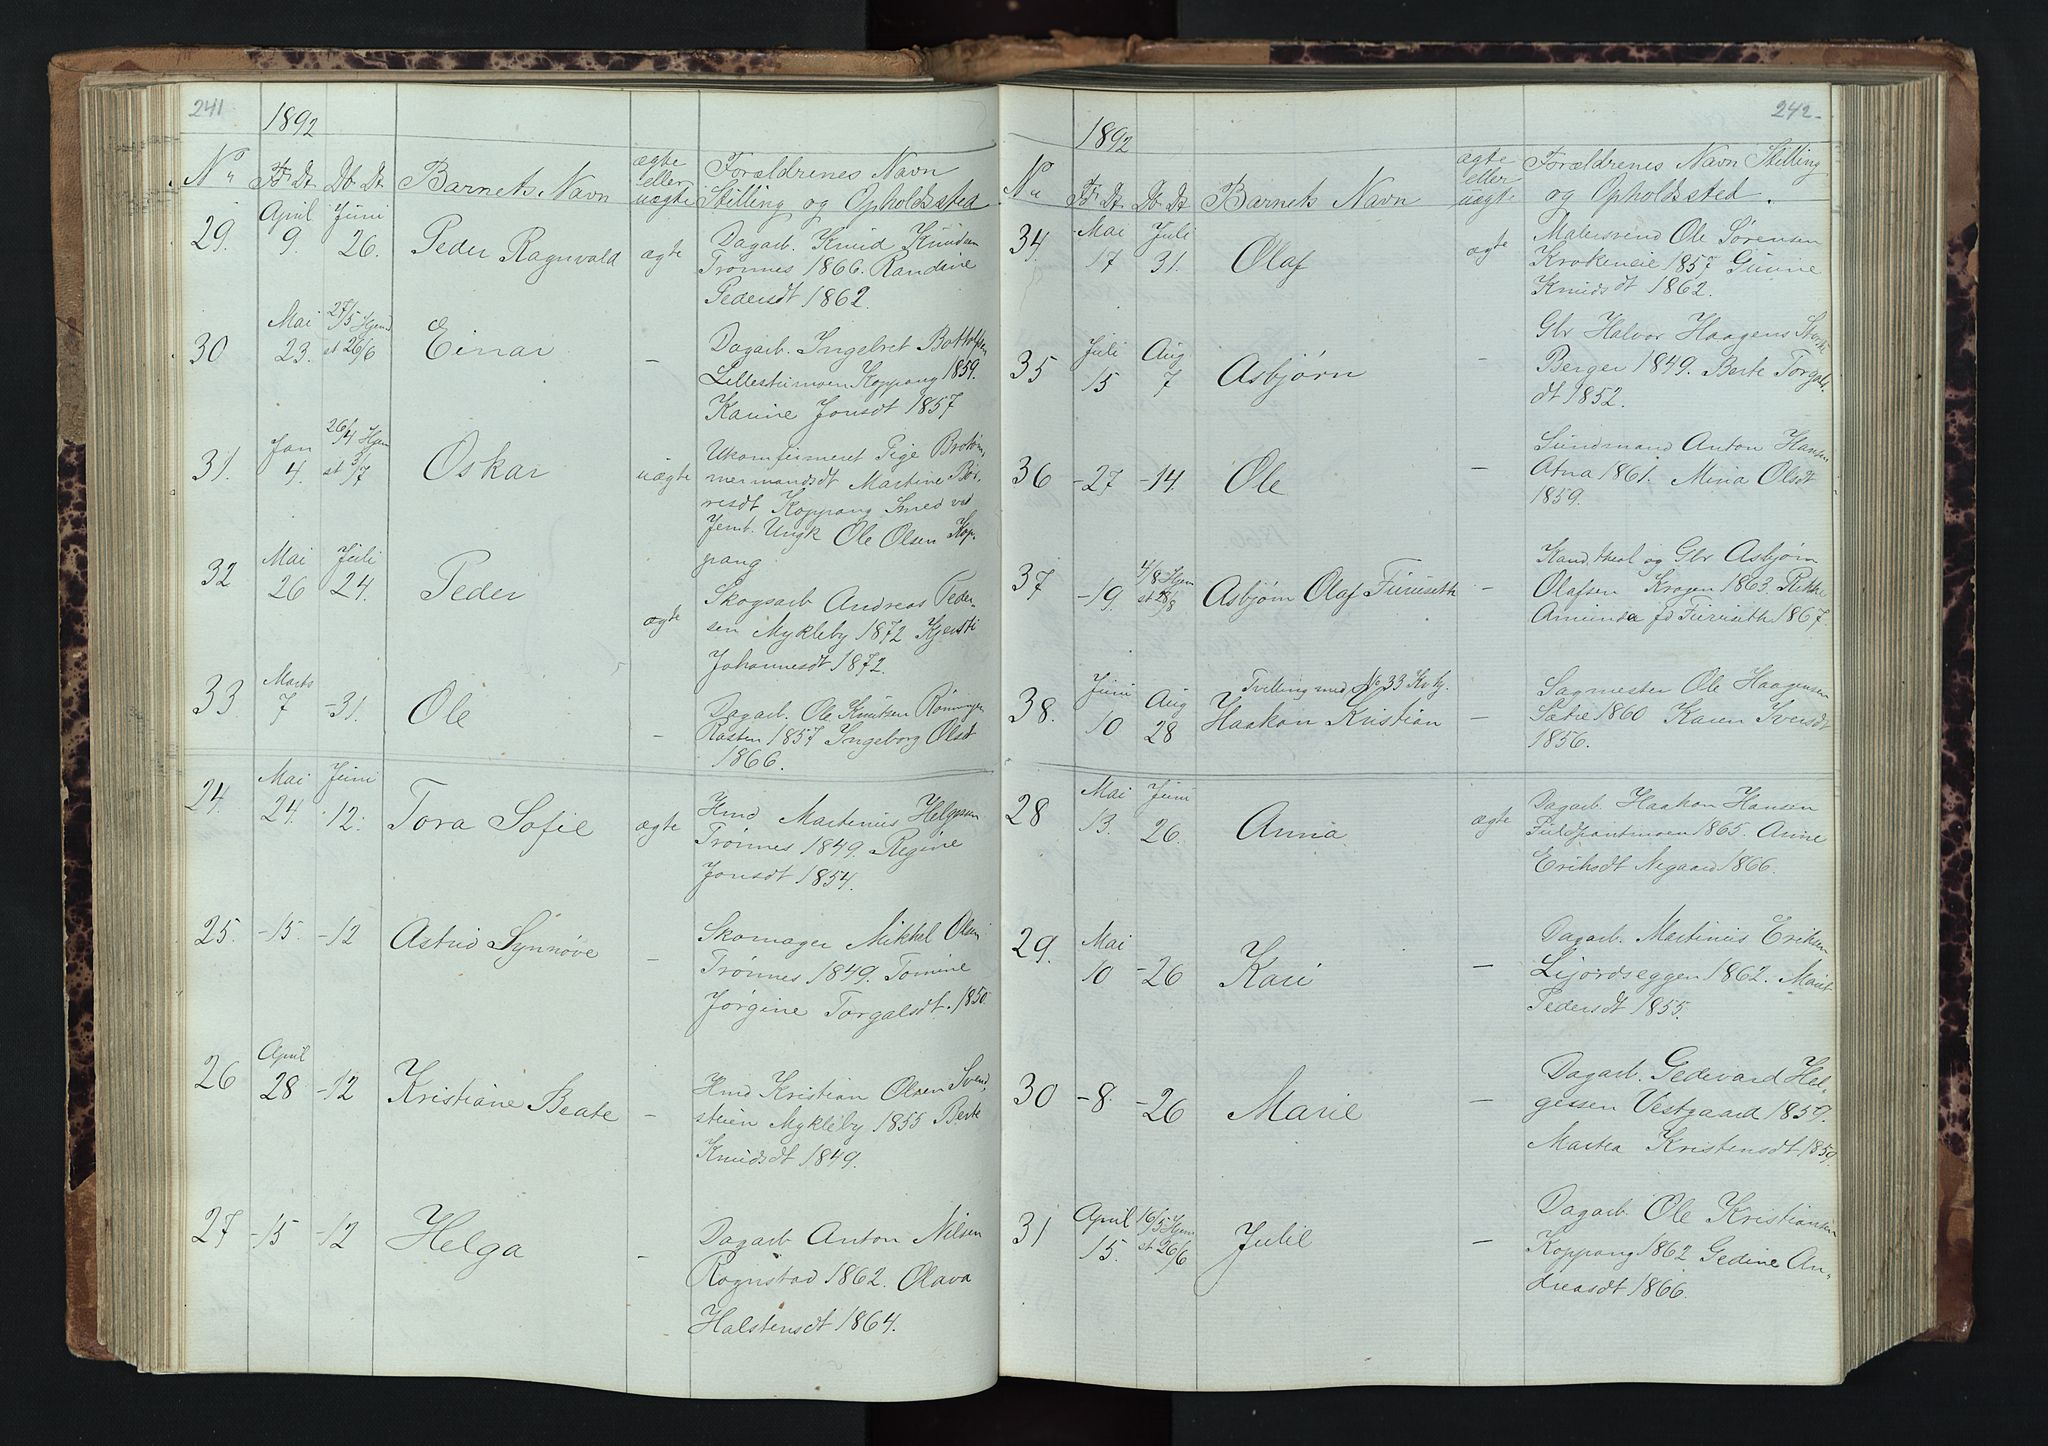 241
1892
No Fdt Dbdt Barnets Navn ægte eller uægte Forældrenes Navn Stilling og Opholdssted
29. April 9. Juni 26. Peder Ragnvald ægte Dagarb. Knud Knudsen
Trønnes 1866. Randine
Pedersdt 1862
30 Mai 23. 27/5 Hjem st 26/6 Einar - Dagarb. Ingebret Bottolfsen
Lillestumoen Koppang 1859.
Karine Jonsdt 1857
31. Jan 4. 26/4 Hjem st 3/7 Oskar uægte Ukonfirmeret Pige
Martine Bør-
resdt Koppang Smed ved
Jernb. Ungk Ole Olsen Kop-
pang
32 Mai 26 Juli 24. Peder ægte Skogsarb Andreas Peder-
sen Mykleby 1872 Kjersti
Johannesdt 1872.
33 Marts 7 -31. Ole - Dagarb. Ole Knutsen Rønningen
Rasten 1857 Ingeborg Olsdt
1866.
24. Mai 24. Juni 12. Tora Sofie ægte Hmd Martinus Helgesen
Trønnes 1849. Regine
Jonsdt 1854.
25. -15. -12 Astrid Synnøve - Skomager Mikkel Olsen
Trønnes 1849. Tomine
Jørgine Torgalsdt. 1850
26 April 28 -12 Kristiane Beate - Hmd Kristian Olsen Svend-
stuen Mykleby 1855 Berte
Knudsdt 1849.
27 -15 -12 Helga - Dagarb Anton Nilsen
Rognstad 1862. Olava
Halstensdt 1864.
242
1892
No Fdt Dbdt Barnets Navn ægte eller uægt. Forældrenes Navn Stilling
og Opholdssted.
34. Mai 17 Juli 31. Olaf ægte Malersvend Ole Sørensen
Krokeneie 1857 Gunine
Knudsdt 1862.
35 Juli 15 Aug 7 Asbjørn - Gbr Halvor Haagens
Berger 1849. Berte Torgals-
dt 1852.
36 -27 -14. Ole - Sundmand Anton Hansen
Atna 1861. Mina Olsdt
1859.
37 -19. 4/8 Hjem st 28/8 Asbjørn Olaf Furuseth - Kand. theol og Gbr Asbjørn
Olafsen Krogen 1863. Rikke
Amunda fd Furuseth 1867.
38. Juni 10 Aug 28 Tvilling med No 33 Kvkj.
Haakon Kristian - Sagmester Ole Haagensen
Sætre 1860 Karen Iversdt
1856.
28 Mai 13. Juni 26. Anna ægte Dagarb. Haakon Hansen
1865. Anne
Eriksdt Negaard 1866.
29. Mai 10 -26 Kari - Dagarb. Martinus Eriksen
Lijordseggen 1862. Marit
Pedersdt 1855.
30 -8. -26 Marie - Dagarb. Gedevard Hel-
gessen Vestgaard 1859.
Martea Kristensdt 1859.
31 April 15. 16/5 Hjem st 26/6 Julie - Dagarb. Ole Kristiansen
Koppang 1862. Gedine An-
dreasdt 1866.